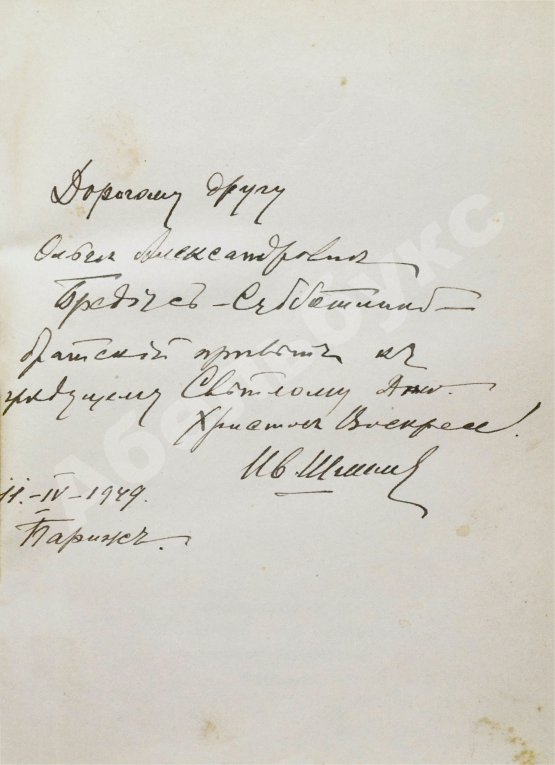 Дорогому другу
Ольге Александровне
Бредiусъ-Субботиной –
братскiй привѣтъ къ
грядущему Свѣтлому Дню.
Христосъ Воскресе!
Ив. Шмелев
11.-IV-1949.
Парижъ.
Абельбукс